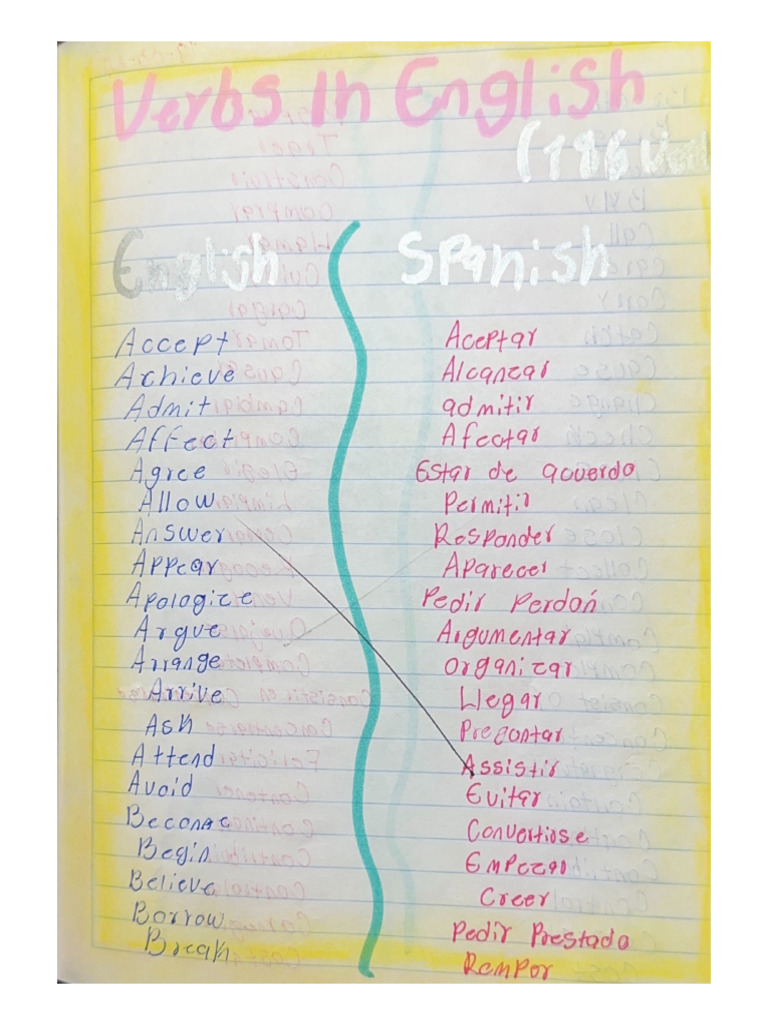 Verbs in English
(186
English Spanish
Accept Aceptar
Achieve Alcanzar
Admit admitir
Affect Afectar
Agree Estar de acuerdo
Allow Permitir
Answer Responder
Appear Aparecer
Apologize Pedir Perdoń
Argue Argumentar
Arrange organizar
Arrive Llegar
Ask Preguntar
Attend Assistir
Avoid Evitar
Become Convertirse
Begin Empezar
Believe Creer
Borrow Pedir Prestado
Break Rompor